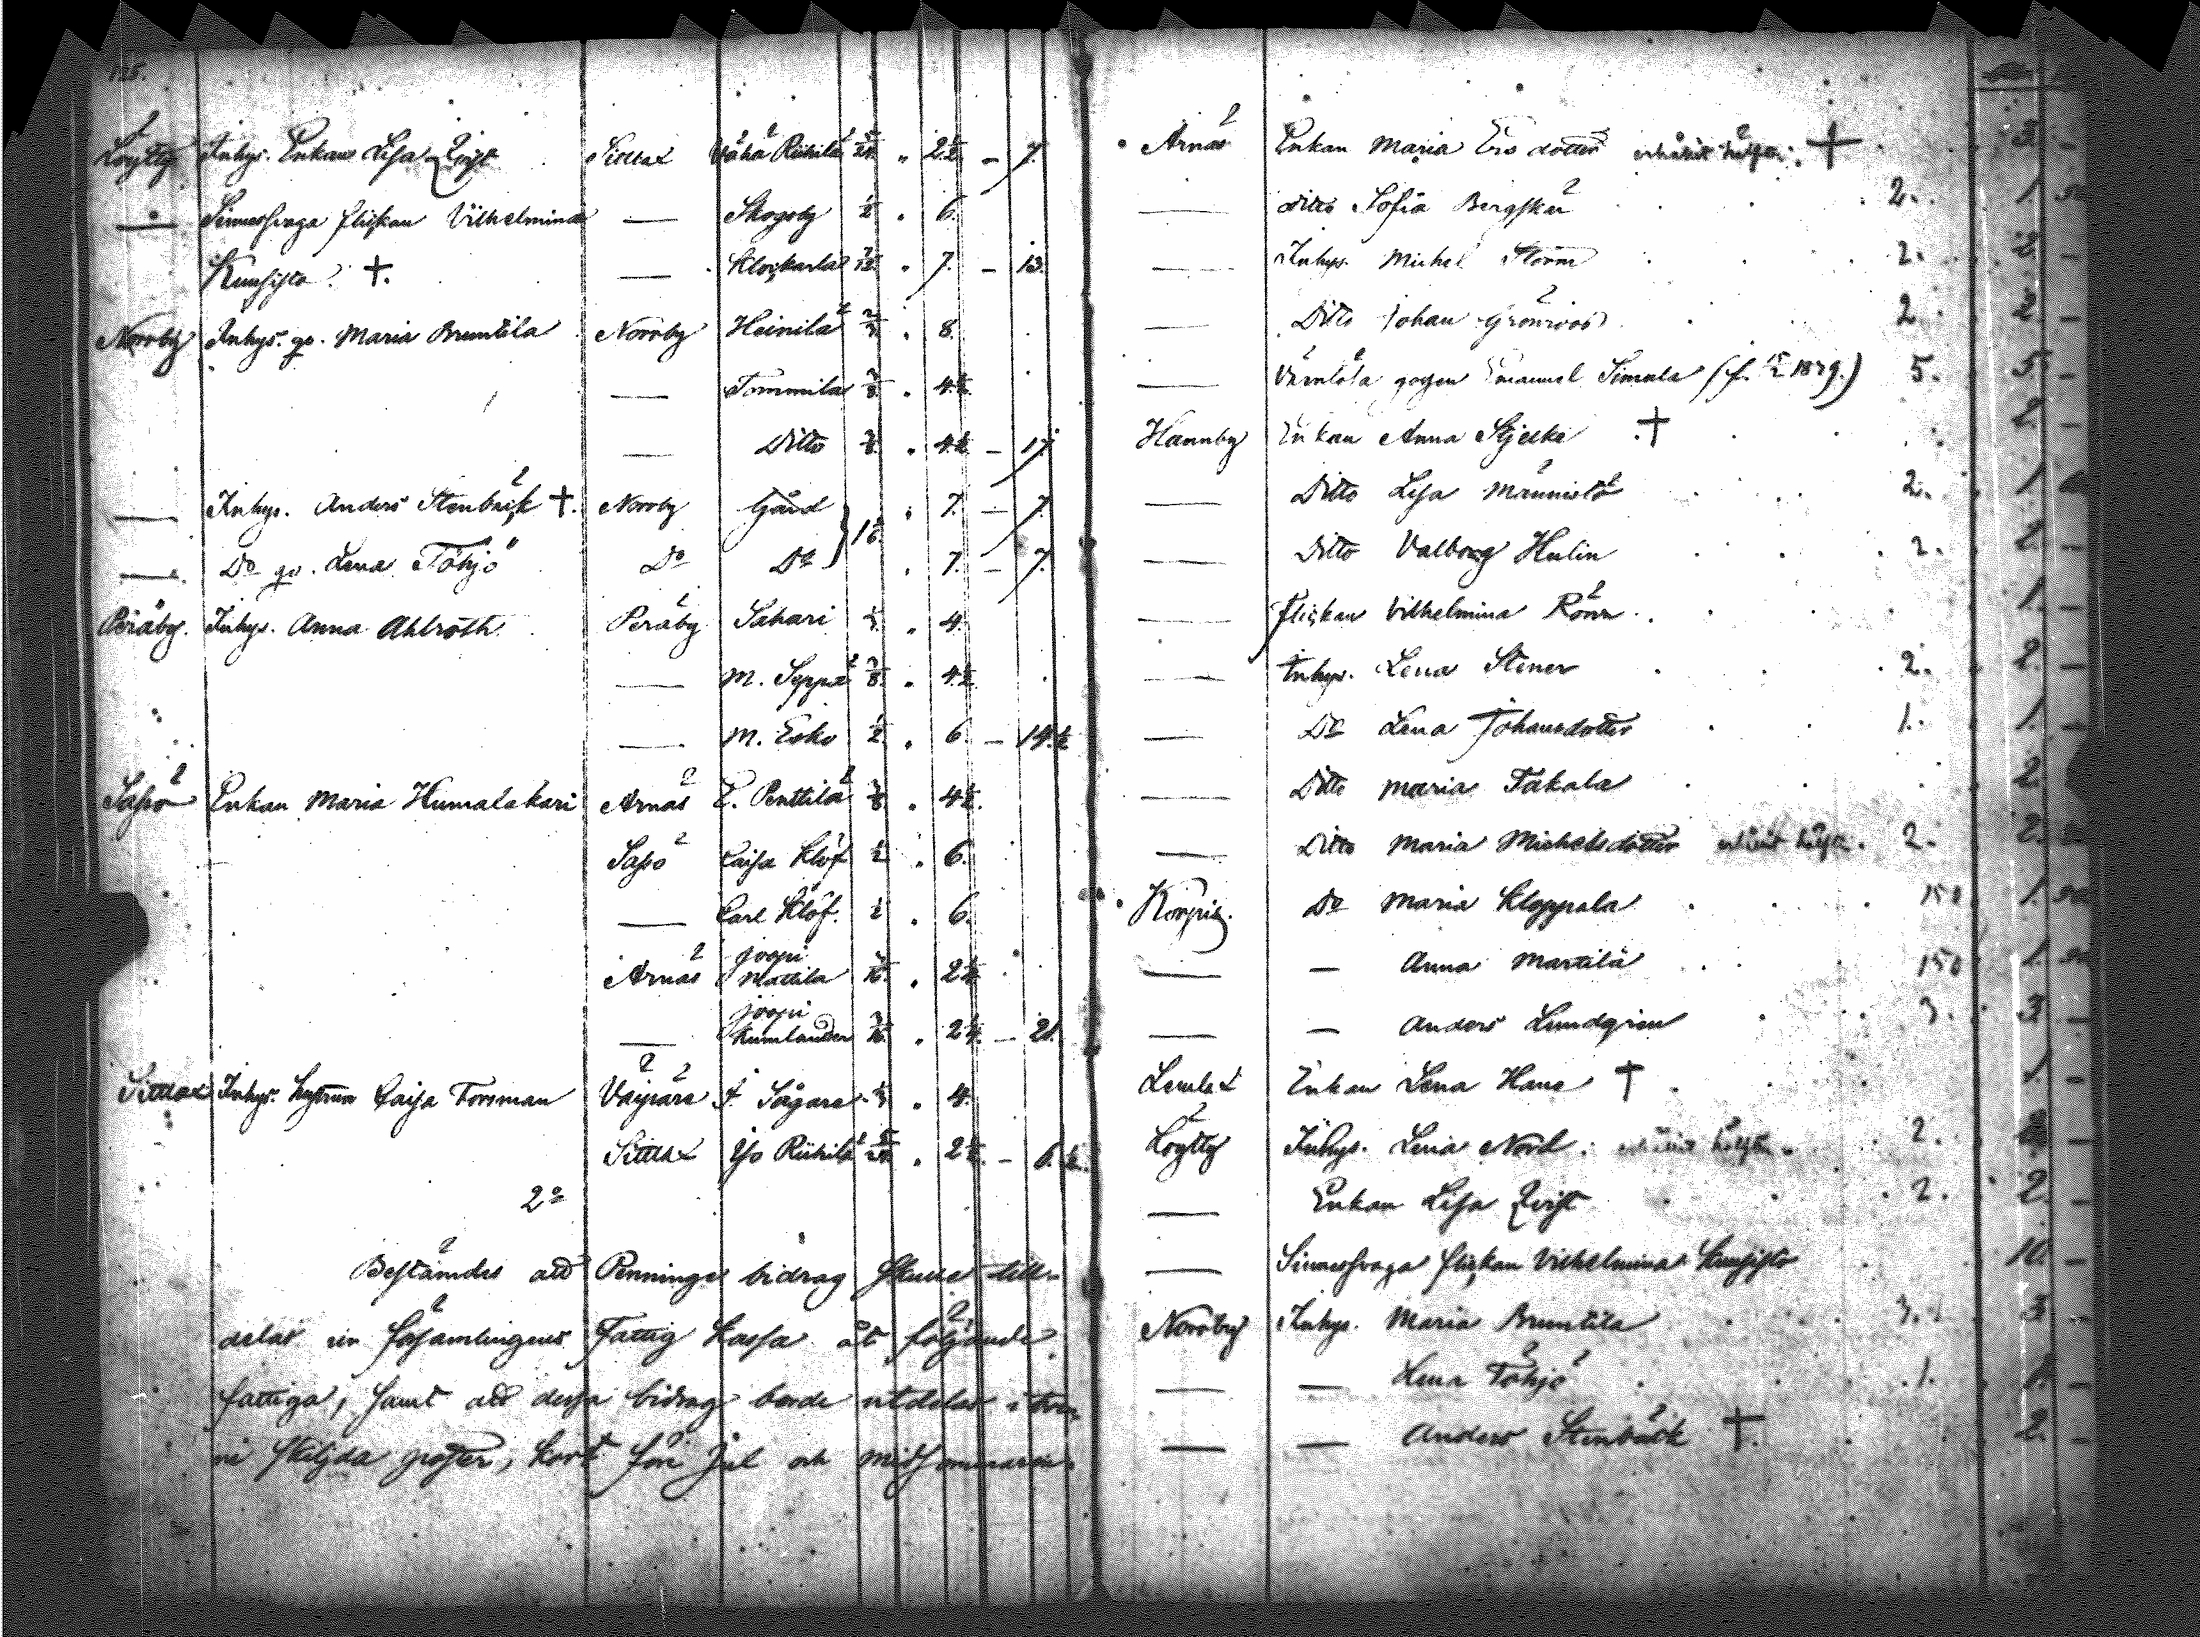 Löytty Inhys. Enkan Lisa Qvist Sittlax Vähä Riihilä 5/24 " 2½ – 7.
— Sinnessvaga flickan Vilhelmina — Skogsby ½ " 6.
Kunsisto. †. — Klockarla 7/12 " 7. – 13.
Norrby Inhys. qv. Maria Bruntila Norrby Heinilä 2/3 " 8.
— Tommila 3/8 " 4½
— Ditto 3/8 " 4½ – 17.
— Inhys. Anders Stenbäck †. Norrby Gård " 7. – 7.
— Do qv. Lena Töhjö Do Do " 7. – 7.
Peräby. Inhys. Anna Ahlroth Peräby Sahari 1/3 " 4.
— M. Seppä 3/8 " 4½
— M. Esko ½ " 6. – 14½
Sapsö Enkan Maria Humalakari Arnäs E. Penttilä 3/8 " 4½.
Sapsö Caisa Klöf ½ " 6.
— Carl Klöf. ½ " 6.
Arnäs Joopi Mattila 3/16 " 2¼
— Joopi Kumlander 3/16 " 2¼. – 21.
Sittlax Inhys. hustrun Caisa Forsman Vaipärä Sågars 1/3 " 4.
Sittlax Iso Riihilä 5/24 " 2½. – 6.½.
2o
Bestämdes att Penninge bidrag skulle till-
delas ur församlingens Fattig Kassa åt följande
fattiga, samt att dessa bidrag borde utdelas i tven-
ne skiljda poster, kort före Jul och midsommaren.
Arnäs Enkan Maria Ersdotter erhållit hälften. † 3. –
— Ditto Sofia Bergskär 2. 1. 50
— Inhys. Michel Storm 2. 2. –
— Ditto Johan Grönroos 2. 2. –
— Värnlösa gossen Emanuel Simula (f. 1879.) 5. 5. –
Hannby Enkan Anna Stjelke † 2. –
— Ditto Lisa Männistö 2. 1.
— Ditto Valborg Hulin 2. 2. –
— flickan Vilhelmina Rönn 1. –
— Inhys. Lena Stener 2. 2. –
— Do Lena Johansdotter 1. 1. –
— Ditto Maria Takala 2. –
— Ditto Maria Michelsdotter erhållit hälften. 2. 2.
Korpis. Do Maria Kloppala 150 1. 50
— – Anna Martila 150 1. 50
— – Anders Lundgren 3. 3. –
Lemlax Enkan Lena Hane † 1. –
Löytty Inhys. Lena Nord. erhållit hälften. 2.
— Enkan Lisa Qvist 2. 2. –
— Sinnessvaga flickan Vilhelmina Kunsisto 10. –
Norrby Inhys. Maria Bruntila 3. 3 –
— — Lena Töhjö 1. 1. –
— — Anders Stenbäck †. 2. –